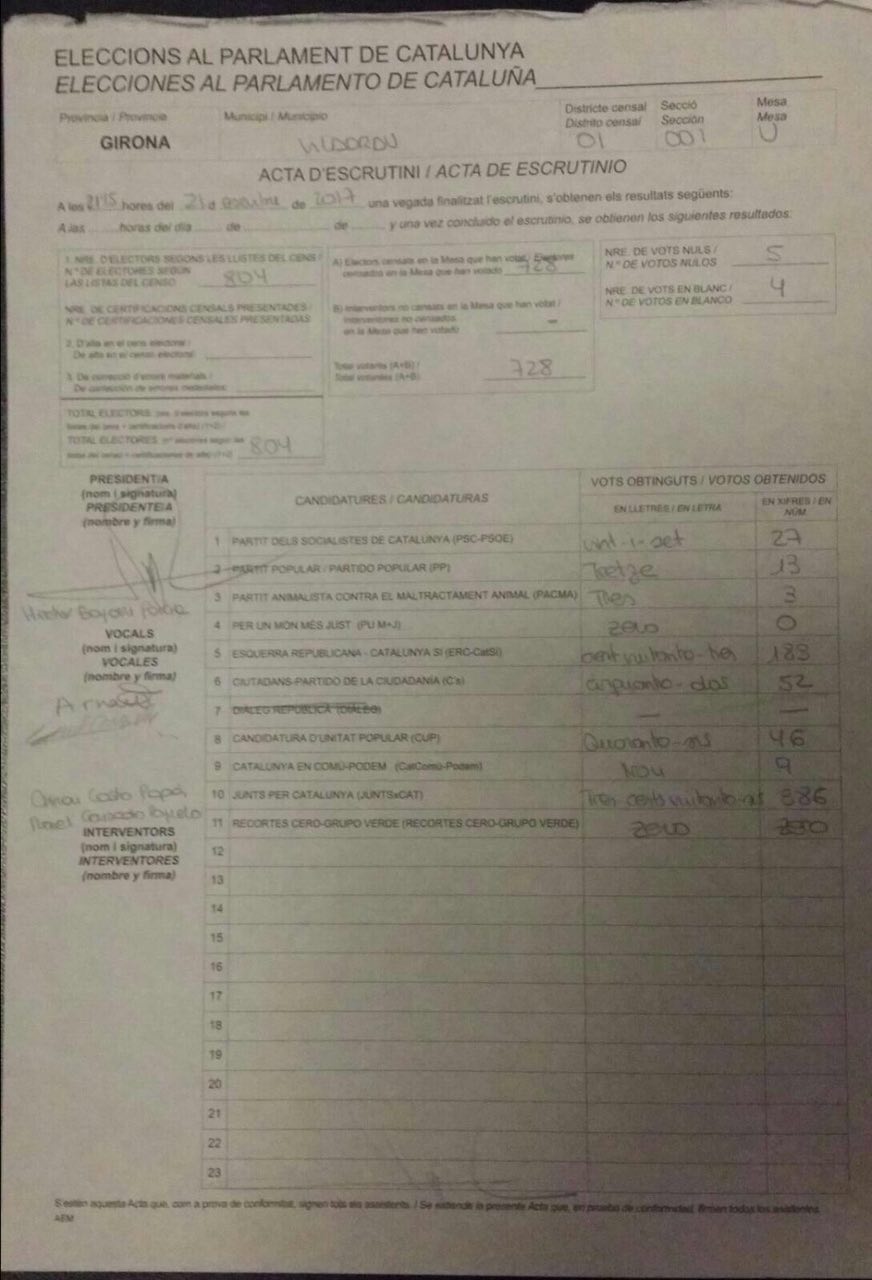 ELECCIONS AL PARLAMENT DE CATALUNYA
ELECCIONES AL PARLAMENTO DE CATALUÑA
Província / Provincia Municipi / Municipio Districte censal Secció Mesa
Distrito censal Sección Mesa
GIRONA VILADRAU 01 001 U
ACTA D'ESCRUTINI / ACTA DE ESCRUTINIO
A les 21'15 hores del 21 d de 2017 una vegada finalitzat l'escrutini, s'obtenen els resultats següents:
A las horas del día de de y una vez concluido el escrutinio, se obtienen los siguientes resultados:
1. NRE. D'ELECTORS SEGONS LES LLISTES DEL CENS /
N.º DE ELECTORES SEGÚN
LAS LISTAS DEL CENSO 804
NRE. DE CERTIFICACIONS CENSALS PRESENTADES /
N.º DE CERTIFICACIONES CENSALES PRESENTADAS
2. D'alta en el cens electoral /
De alta en el censo electoral
3. De correcció d'errors materials /
De corrección de errores materiales
TOTAL ELECTORS
TOTAL ELECTORES 804
A) Electors censats en la Mesa que han votat / Electores
censados en la Mesa que han votado 728
B) Interventors no censats en la Mesa que han votat /
Interventores no censados
en la Mesa que han votado –
Total votants (A+B) /
Total votantes (A+B) 728
NRE. DE VOTS NULS /
N.º DE VOTOS NULOS 5
NRE. DE VOTS EN BLANC /
N.º DE VOTOS EN BLANCO 4
PRESIDENT/A
(nom i signatura)
PRESIDENTE/A
(nombre y firma)
VOCALS
(nom i signatura)
VOCALES
(nombre y firma)
INTERVENTORS
(nom i signatura)
INTERVENTORES
(nombre y firma)
CANDIDATURES / CANDIDATURAS VOTS OBTINGUTS / VOTOS OBTENIDOS
EN LLETRES / EN LETRA EN XIFRES / EN NÚM
1 PARTIT DELS SOCIALISTES DE CATALUNYA (PSC-PSOE) vint-i-set 27
2 PARTIT POPULAR / PARTIDO POPULAR (PP) Tretze 13
3 PARTIT ANIMALISTA CONTRA EL MALTRACTAMENT ANIMAL (PACMA) Tres 3
4 PER UN MÓN MÉS JUST (PU M+J) zero 0
5 ESQUERRA REPUBLICANA - CATALUNYA SÍ (ERC-CatSí) 183
6 CIUTADANS-PARTIDO DE LA CIUDADANÍA (C's) 52
7 DIÀLEG REPÚBLICA (DIÀLEG) — —
8 CANDIDATURA D'UNITAT POPULAR (CUP) 46
9 CATALUNYA EN COMÚ-PODEM (CatComú-Podem) Nou 9
10 JUNTS PER CATALUNYA (JUNTSxCAT) 386
11 RECORTES CERO-GRUPO VERDE (RECORTES CERO-GRUPO VERDE) zero
12
13
14
15
16
17
18
19
20
21
22
23
S'estén aquesta Acta que, com a prova de conformitat, signen tots els assistents. / Se extiende la presente Acta que, en prueba de conformidad, firman todos los asistentes.
AEM